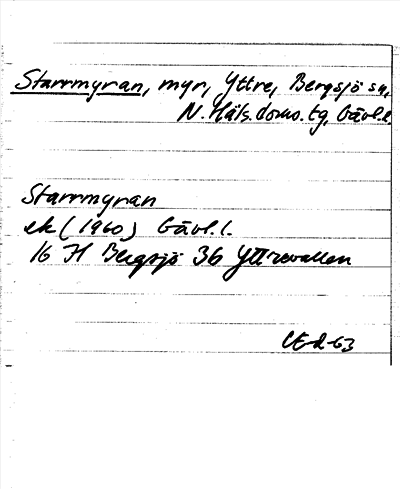 Starrmyran, myr, Yttre, Bergsjö sn,
N. Häls. doms. tg, Gävl.l.
Starrmyran
ek (1960) Gävl.l.
16 H Bergsjö 3b Yttrevallen